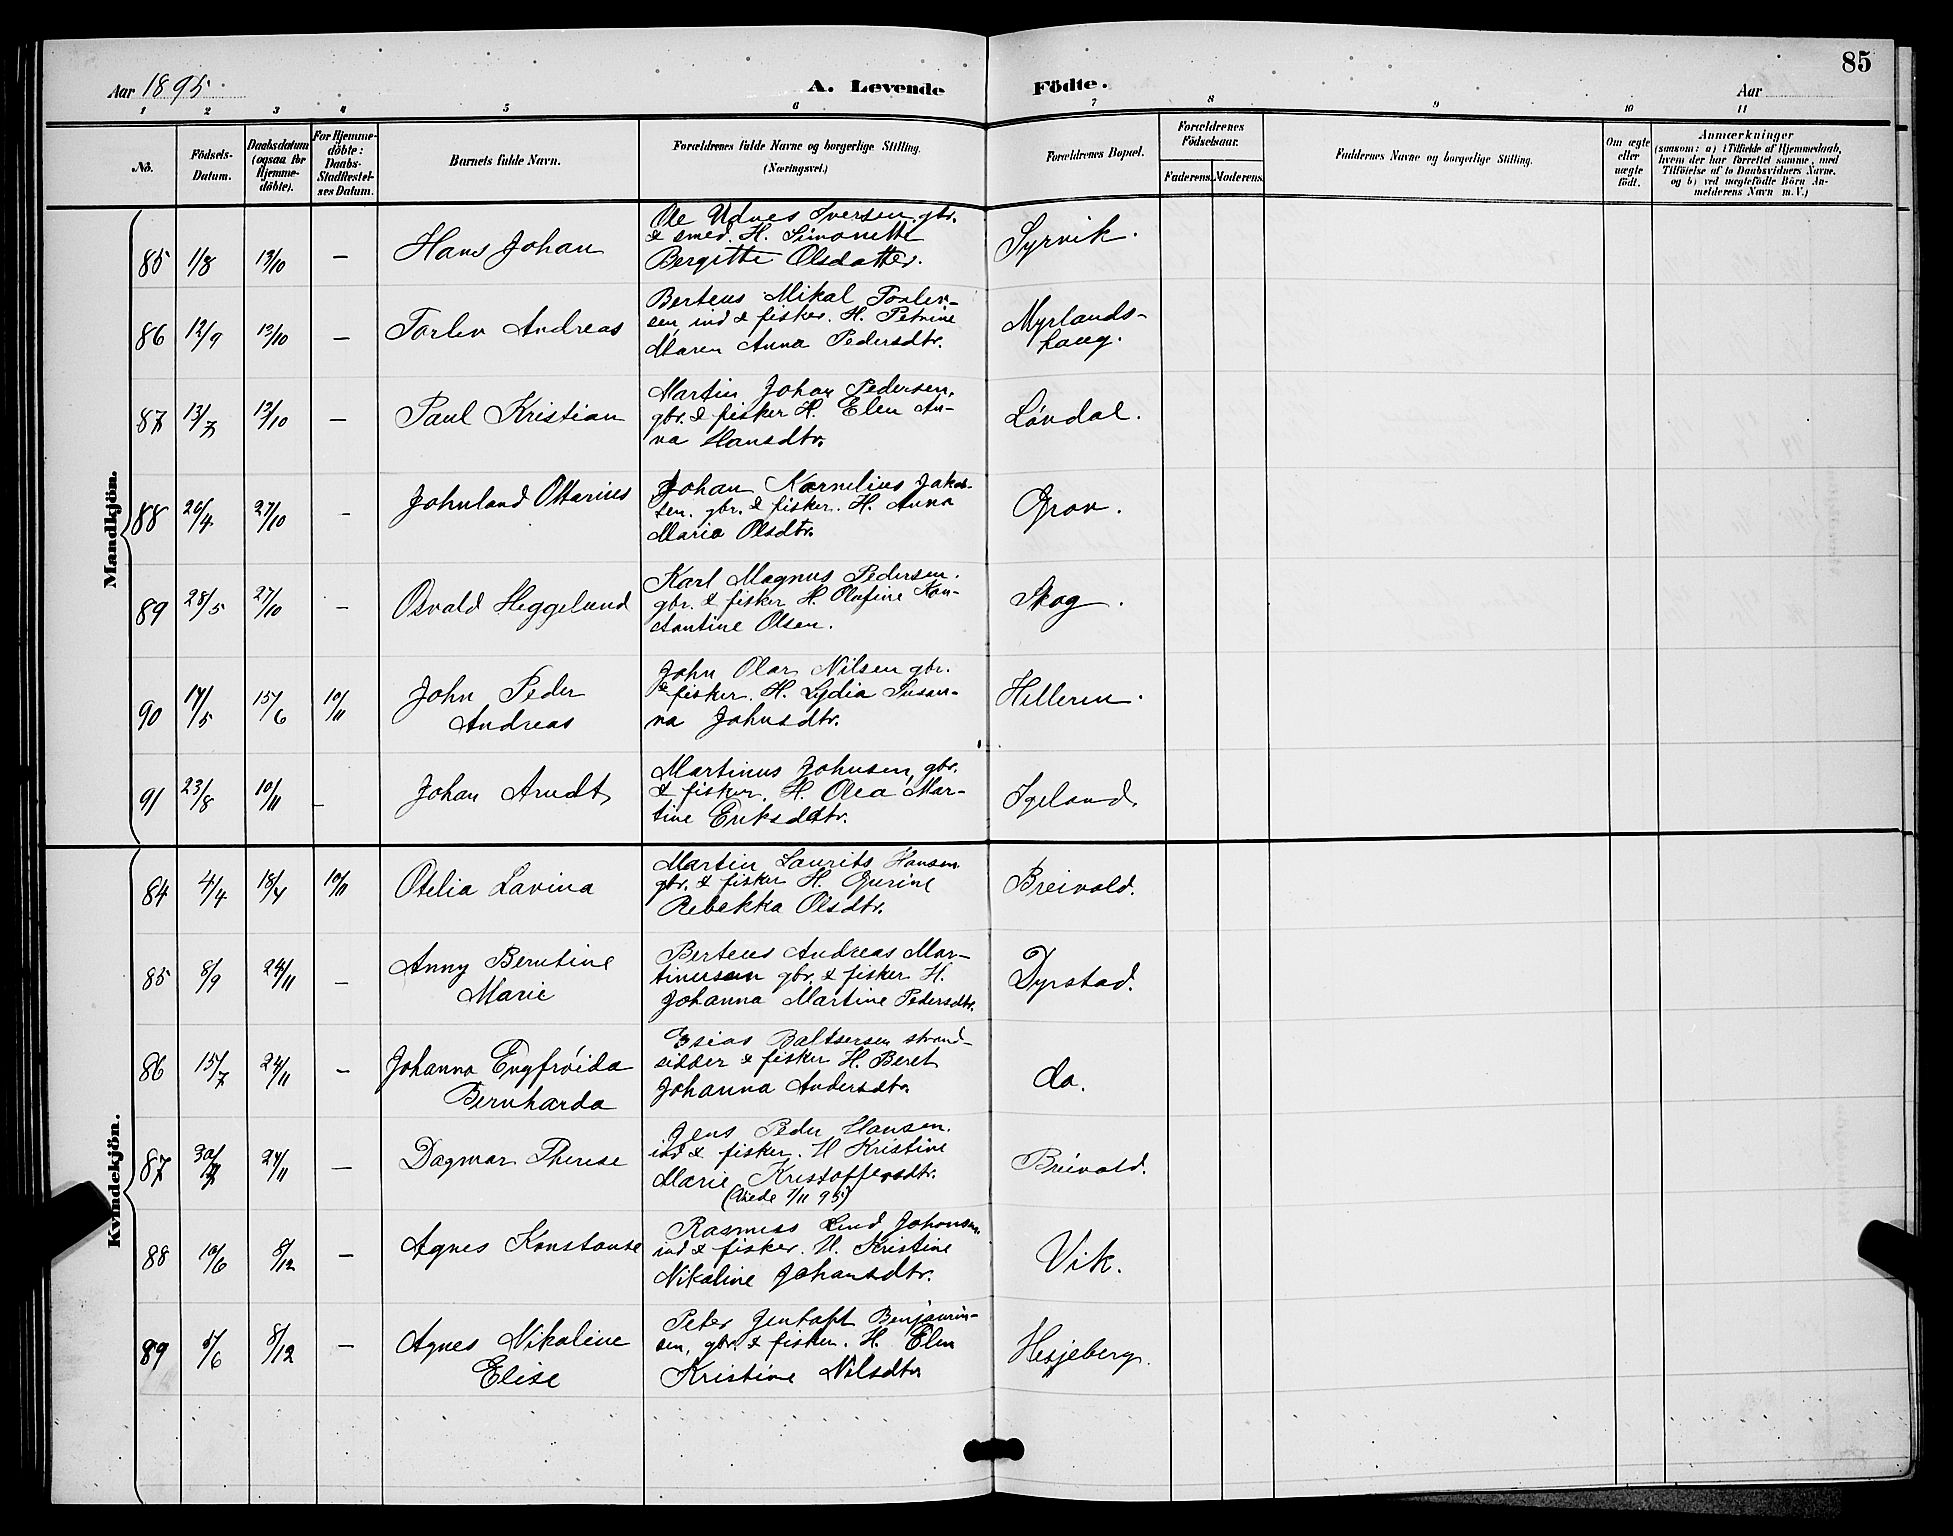 85
Aar 1895.
A. Levende Födte.
Aar
1 2 3 4 5 6 7 8 9 10 11
No.
Födsels-
Datum.
Daabsdatum
(ogsaa for
Hjemme-
döbte).
For Hjemme-
döbte:
Daabs-
Stadfæstel-
ses Datum.
Barnets fulde Navn.
Forældrenes fulde Navne og borgerlige Stilling.
(Næringsvei.)
Forældrenes Bopæl.
Forældrenes
Födselsaar.
Faderens. Moderens.
Faddernes Navne og borgerlige Stilling.
Om ægte
eller
uægte
födt.
Anmærkninger
(saasom: a) i Tilfælde af Hjemmedaab,
hvem der har forrettet samme, med
Tilföielse af to Daabsvidners Navne,
og b) ved uægtefödte Börn An-
melderens Navn m. V.)
Mandkjön.
85 1/8 13/10 — Hans Johan
Ole Udnes Iversen, gbr.
& smed. H. Simonette
Bergitte Olsdatter.
Syrvik.
86 12/9 13/10 — Torlev Andreas
Berteus Mikal Torlev-
sen, ind & fisker. H. Petrine
Maren Anna Pedersdtr.
Myrlands-
haug.
87 13/7 13/10 — Paul Kristian
Martin Johan Pedersen,
gbr. & fisker H. Elen An-
na Hansdtr.
Löndal.
88 26/4 27/10 — Johnland Ottarius
Johan Kornelius Jakob-
sen. gbr. & fisker. H. Anna
Maria Olsdtr.
Grov.
89 28/5 27/10 — Osvald Heggelund
Karl Magnus Pedersen.
gbr. & fisker H. Olufine Kon-
stantine Olsen.
Skog.
90 17/5 15/6 10/11 John Peder
Andreas
John Olar Nilsen gbr.
& fisker. H. Lydia Susan-
na Johnsdtr.
Helleren.
91 23/8 10/11 — Johan Arndt
Martinus Johnsen, gbr.
& fisker. H. Olea Mar-
tine Eriksdtr.
Igeland.
Kvindekjön.
84 4/4 18/4 10/11 Otelia Lavina
Martin Laurits Hansen
gbr. & fisker H. Gurine
Rebekka Olsdtr.
Breivold.
85 8/9 24/11 — Anny Berntine
Marie
Berteus Andreas Mar-
tinussen gbr. & fisker H.
Johanna Martine Pedersdtr.
Dyrstad.
86 15/7 24/11 — Johanna Engfröida
Bernharda
Esias Baltsersen strand-
sidder & fisker H. Beret
Johanna Andersdtr.
do.
87 24/11 — Dagmar Therese
Jens Peder Hansen.
ind & fisker. H Kristine
Marie Kristoffersdtr.
(viede 1/11 95)
Breivold.
88 10/6 8/12 — Agnes Konstanse
Rasmus Lind Johansen,
ind & fisker. H. Kristine
Nikoline Johansdtr.
Vik.
89 5/6 8/12 — Agnes Nikoline
Elise
Peter Jentoft Benjamin-
sen, gbr. & fisker. H. Elen
Kristine Nilsdtr
Hesjeberg.